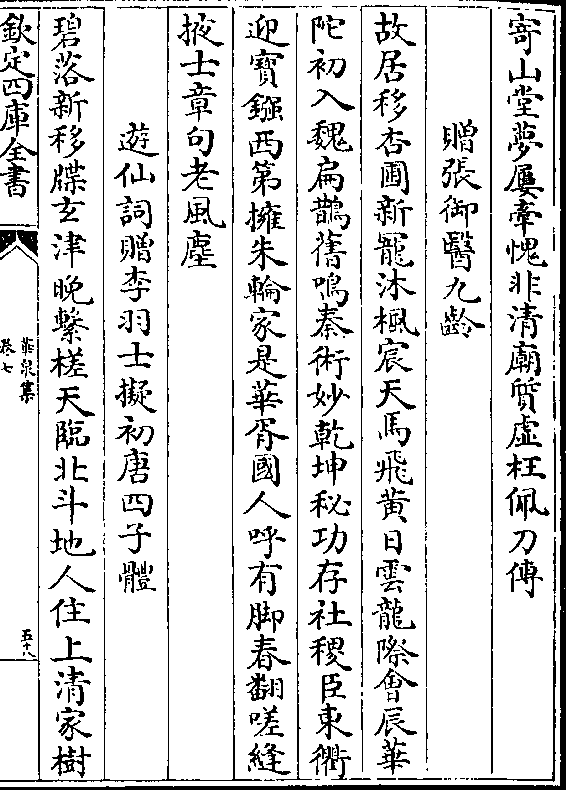 寄山堂夢屢牽愧非清廟質虛枉佩刀傳
贈張御醫九齡
故居移杏圃新寵沐楓宸天馬飛黄日雲龍際會辰華
陀初入魏扁鵲舊鳴秦術妙乾坤秘功存社稷臣東衢
迎寶鏹西第擁朱輪家是華胥國人呼有脚春翻嗟縫
掖士章句老風塵
遊仙詞贈李羽士擬初唐四子體
碧落新移牒玄津晩繫槎天臨北斗地人住上清家樹
欽定四庫全書
卷七
五十八